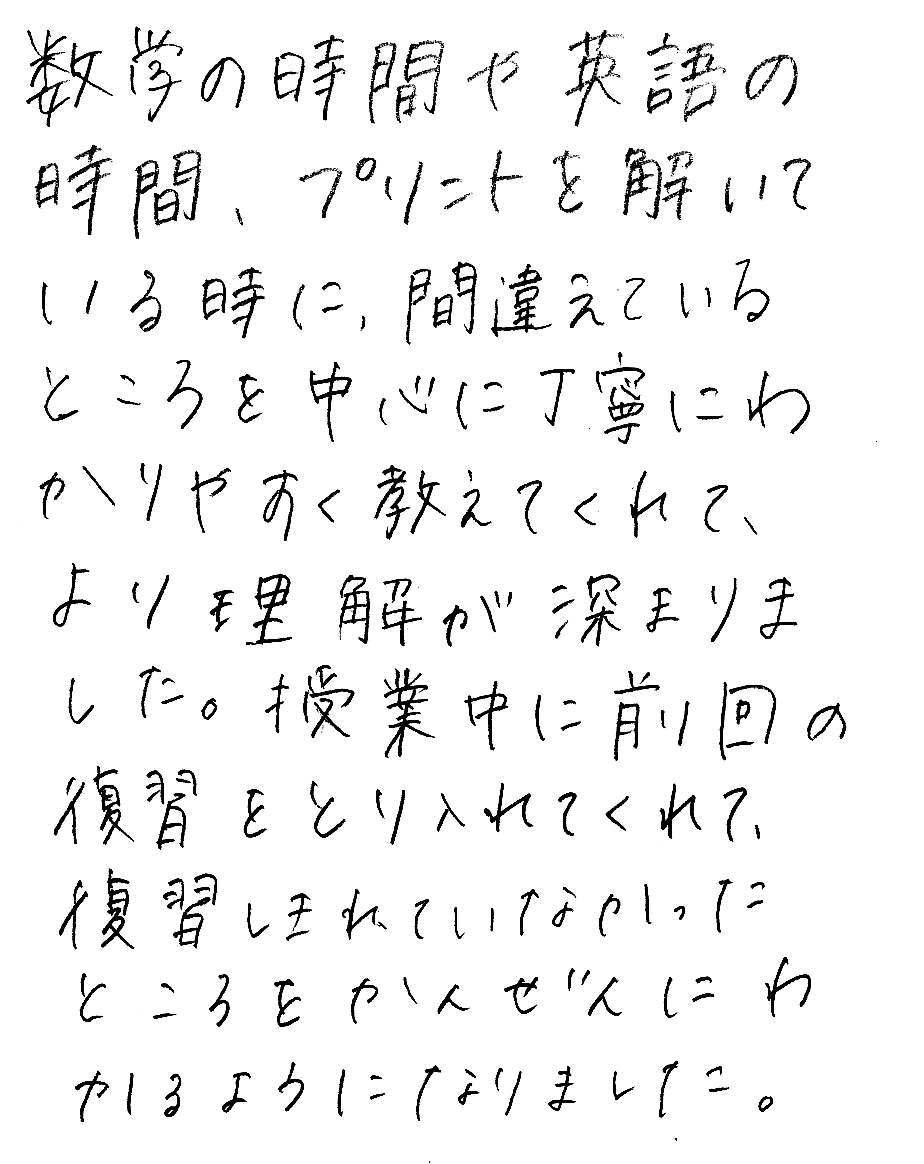 数学の時間や英語の
時間、プリントを解いて
いる時に、間違えている
ところを中心に丁寧にわ
かりやすく教えてくれて、
より理解が深まりま
した。授業中に前回の
復習をとり入れてくれて、
復習しきれていなかった
ところをかんぜんにわ
かるようになりました。